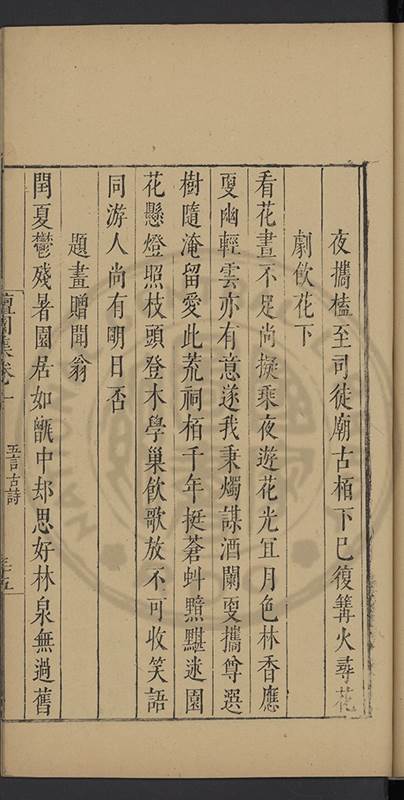 夜攜榼至司徒廟古栢下巳復篝火尋花
劇飲花下
看花晝不足尚擬乘夜遊花光冝月色林香應
更幽輕雲亦有意遂我秉燭謀酒闌更攜尊選
樹隨淹留愛此荒祠栢千年挺蒼虯黯黮迷園
花懸燈照枝頭登木學巢飲歌放不可收笑語
同游人尚有明日否
題畫贈聞翁
閏夏鬱殘暑園居如甑中却思好林泉無過舊
集卷十
五言古詩